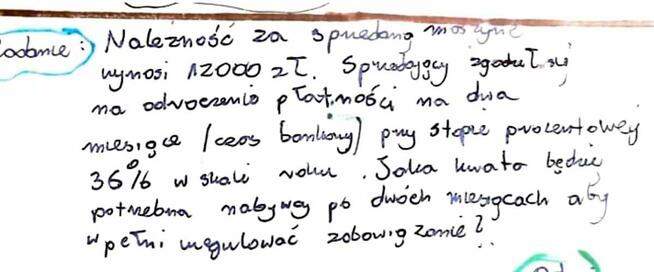 Zadanie: Należność za sprzedaną maszynę
wynosi 12000 zł. Sprzedający zgodził się
na odroczenie płatności na dwa
miesiące (czas bankowy) przy stopie procentowej
36% w skali roku. Jaka kwota będzie
potrzebna nabywcy po dwóch miesiącach aby
w pełni uregulować zobowiązanie?